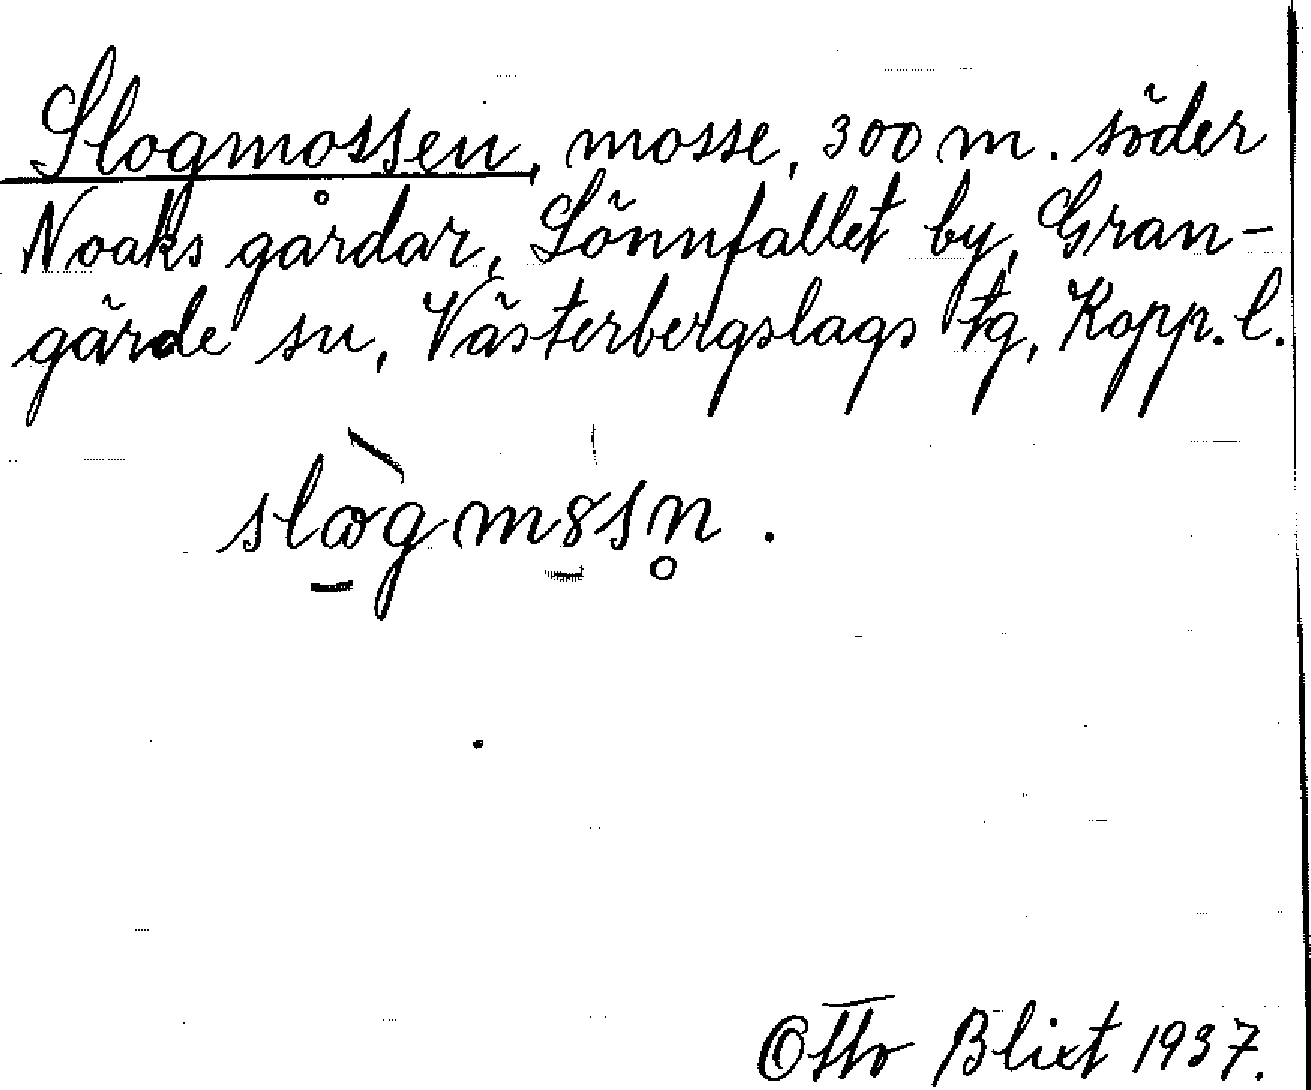 Slogmossen, mosse, 300 m. söder
Noaks gårdar, Lönnfallet by, Gran-
gärde sn, Västerbergslags tg, Kopp. l.
slògm8sn̥ .
Otto Blixt 1937.